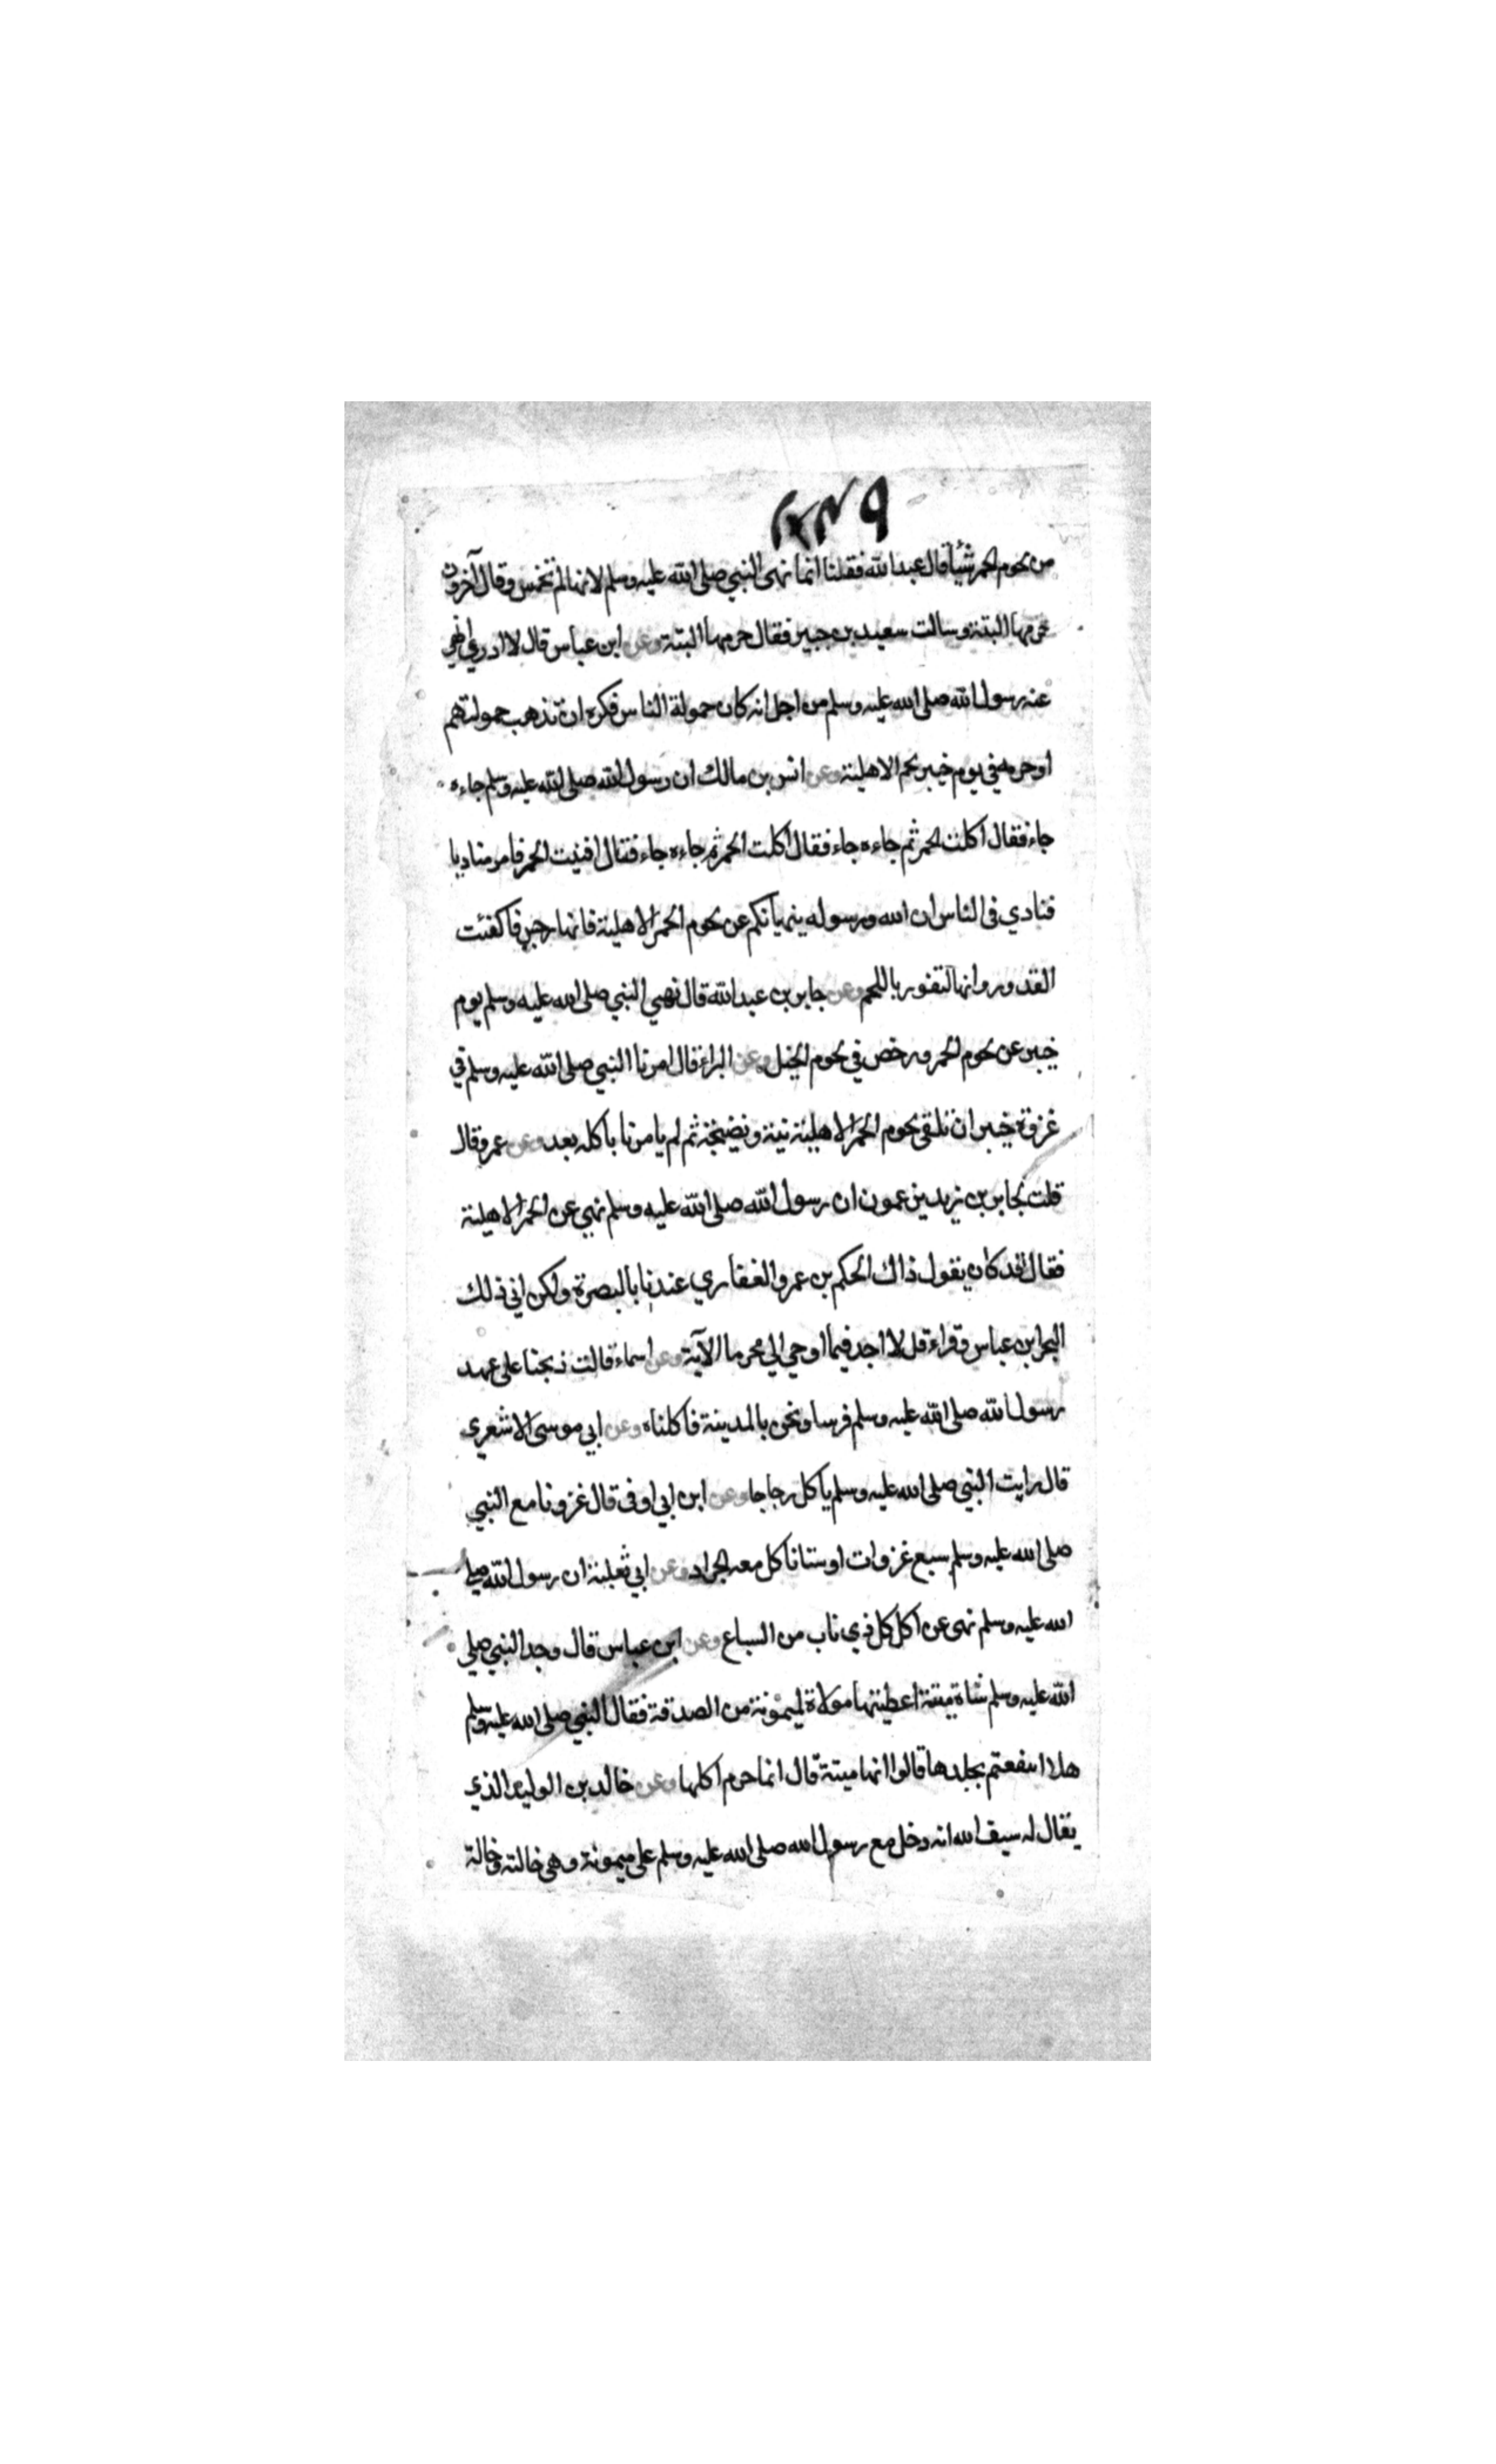 من لحوم الحمر شيأ قال عبد الله فقلنا انما نهى النبي صلى الله عليه وسلم لانها لم تخمس وقال آخرون
حرمها البتة وسالت سعيد بن جبير فقال حرمها البتة وعن ابن عباس قال لا ادري انهي
عنه رسول الله صلى الله عليه وسلم من اجل انه كان حمولة الناس فكره ان تذهب حمولتهم
او حرمه في يوم خيبر لحم الاهلية وعن انس بن مالك ان رسول الله صلى الله عليه وسلم جاءه
جاء فقال اكلت الحمر ثم جاءه جاء فقال اكلت الحمر ثم جاءه جاء فقال افنيت الحمر فامر مناديا
فنادي في الناس ان الله ورسوله ينهيانكم عن لحوم الحمر الاهلية فانها رجس فاكفئت
القدور وانها لتفور باللحم وعن جابر بن عبد الله قال نهي النبي صلى الله عليه وسلم يوم
خيبر عن لحوم الحمر ورخص في لحوم الخيل وعن البراء قال امرنا النبي صلى الله عليه وسلم في
غزوة خيبر ان نلقي لحوم الحمر الاهلية نيئة ونضيجة ثم لم يامرنا باكله بعد وعن عمرو قال
قلت لجابر بن زيد يزعمون ان رسول الله صلى الله عليه وسلم نهي عن الحمر الاهلية
فقال قد كان يقول ذاك الحكم بن عمرو الغفاري عندنا بالبصرة ولكن ابي ذلك
البحر ابن عباس وقراء قل لا اجد فيما اوحي الي محرما الآية وعن اسماء قالت ذبحنا على عهد
رسول الله صلى الله عليه وسلم فرسا ونحن بالمدينة فاكلناه وعن ابي موسى الاشعري
قال رايت النبي صلى الله عليه وسلم ياكل دجاجا وعن ابن ابي اوفى قال غزونا مع النبي
صلى الله عليه وسلم سبع غزوات او ستا ناكل معه الجراد وعن ابي ثعلبة ان رسول الله صلى
الله عليه وسلم نهى عن اكل كل ذي ناب من السباع وعن ابن عباس قال وجد النبي صلى
الله عليه وسلم شاة ميتة اعطيتها مولاة لميمونة من الصدقة فقال النبي صلى الله عليه وسلم
هلا انتفعتم بجلدها قالوا انها ميتة قال انما حرم اكلها وعن خالد بن الوليد الذي
يقال له سيف الله انه دخل مع رسول الله صلى الله عليه وسلم على ميمونة وهي خالته وخالة